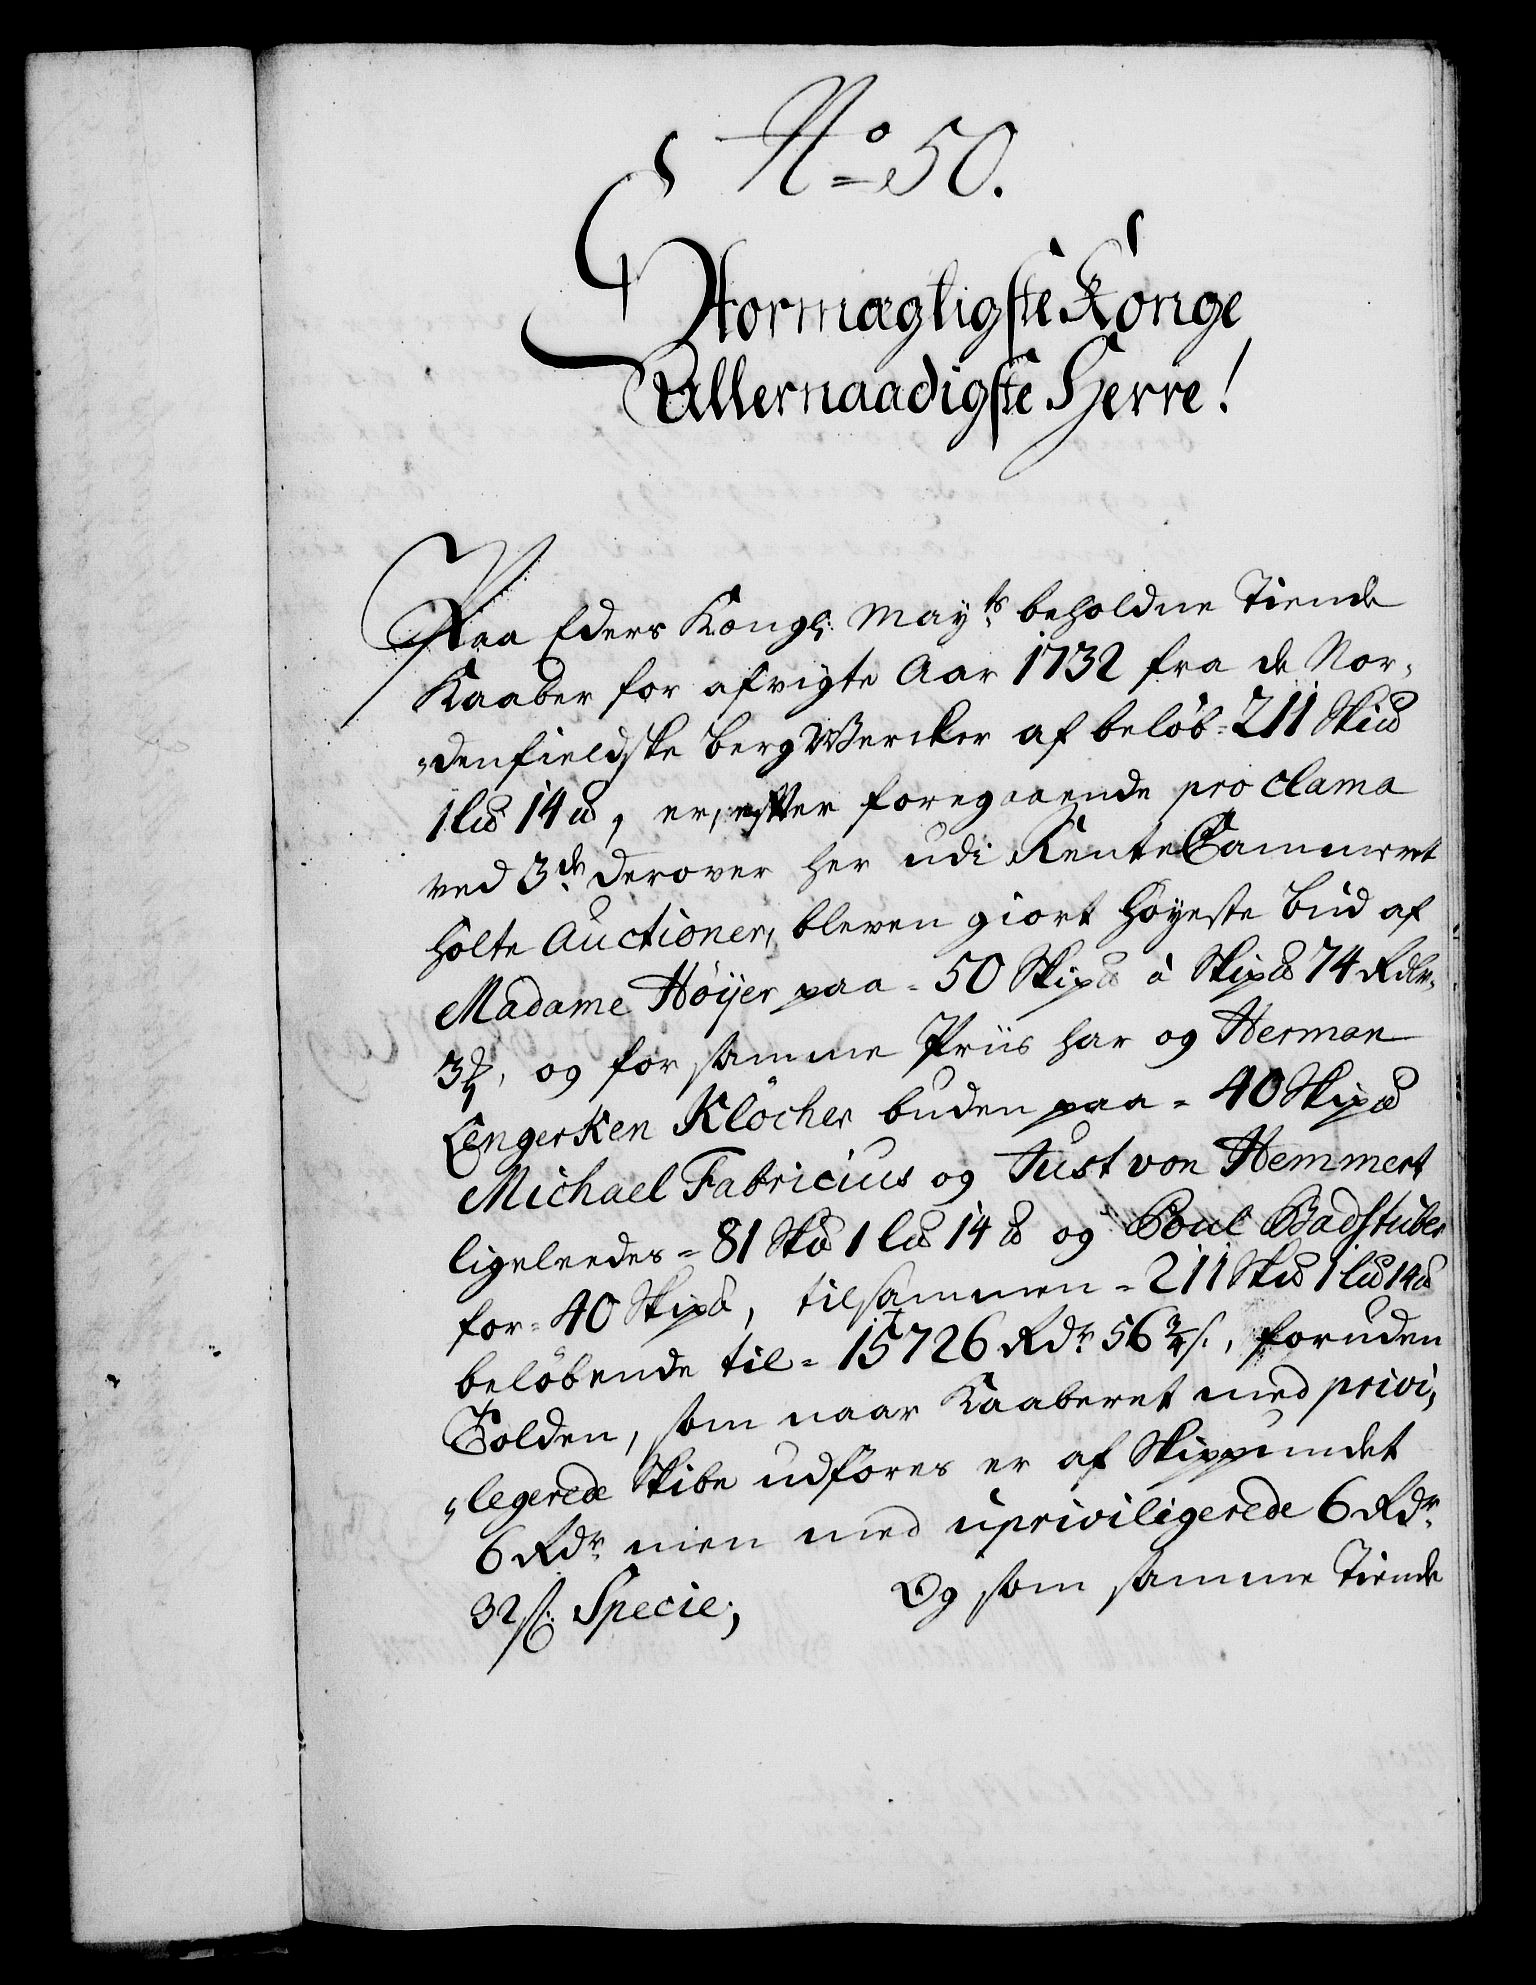 No 50.
Stormægtigste Konge
Allernaadigste Herre!
Paa Eders Kongl: Mayts beholdne Tiende
Kaaber for afvigte Aar 1732 fra de Nor-
denfieldske BergWercker af beløb = 211 Sk℔
1 L℔ 14 ℔, er, efter foregaaende proclama
ved 3de derover her udi RenteCammeret
holte Auctioner, bleven giort høyeste bud af
Madame Höÿer paa = 50 Skip℔ à Skip℔ 74 Rdlr.
3 ₰, og for samme Priis har og Herman
Lengerken Klöcher buden paa = 40 Skip℔
Michael Fabricius og Just von Hemmert
ligeleedes = 81 Sk℔ 1 L℔ 14 ℔ og Poul Badstuber
for = 40 Skip℔, tilsammen = 211 Sk℔ 1 L℔ 14 ℔
beløbende til = 15726 Rdr 56 3/4 s., foruden
Tolden, som naar Kaaberet med privi-
legerede Skibe udføres er af Skippundet
6 Rdr men med upriviligerede 6 Rdr
32 s: Specie; Og som samme Tiende